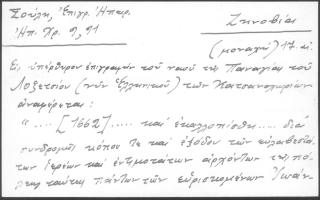 Σούλη, Ἐπιγρ. Ἠπειρ.
Ἠπ. Χρ. 9, 91
Ζηνοβία
(μοναχή) 17. αἰ.
Εἰς ὑπέρθυρον ἐπιγραφὴν τοῦ ναοῦ τῆς Παναγίας τοῦ
Λοζετσίου (νῦν Ἑλληνικοῦ) τῶν Κατσανοχωρίων
ἀναφέρεται:
"..... [1662]..... καὶ ἐκαλλοπίσθη..... διὰ
συνδρομῆς κόπου τε καὶ ἐξόδου τῶν εὐλαβεστά-
των ἱερέων καὶ ἐντιμοτάτων ἀρχόντων τῆς πό-
λεως ταύτης πάντων τῶν εὑρισκομένων